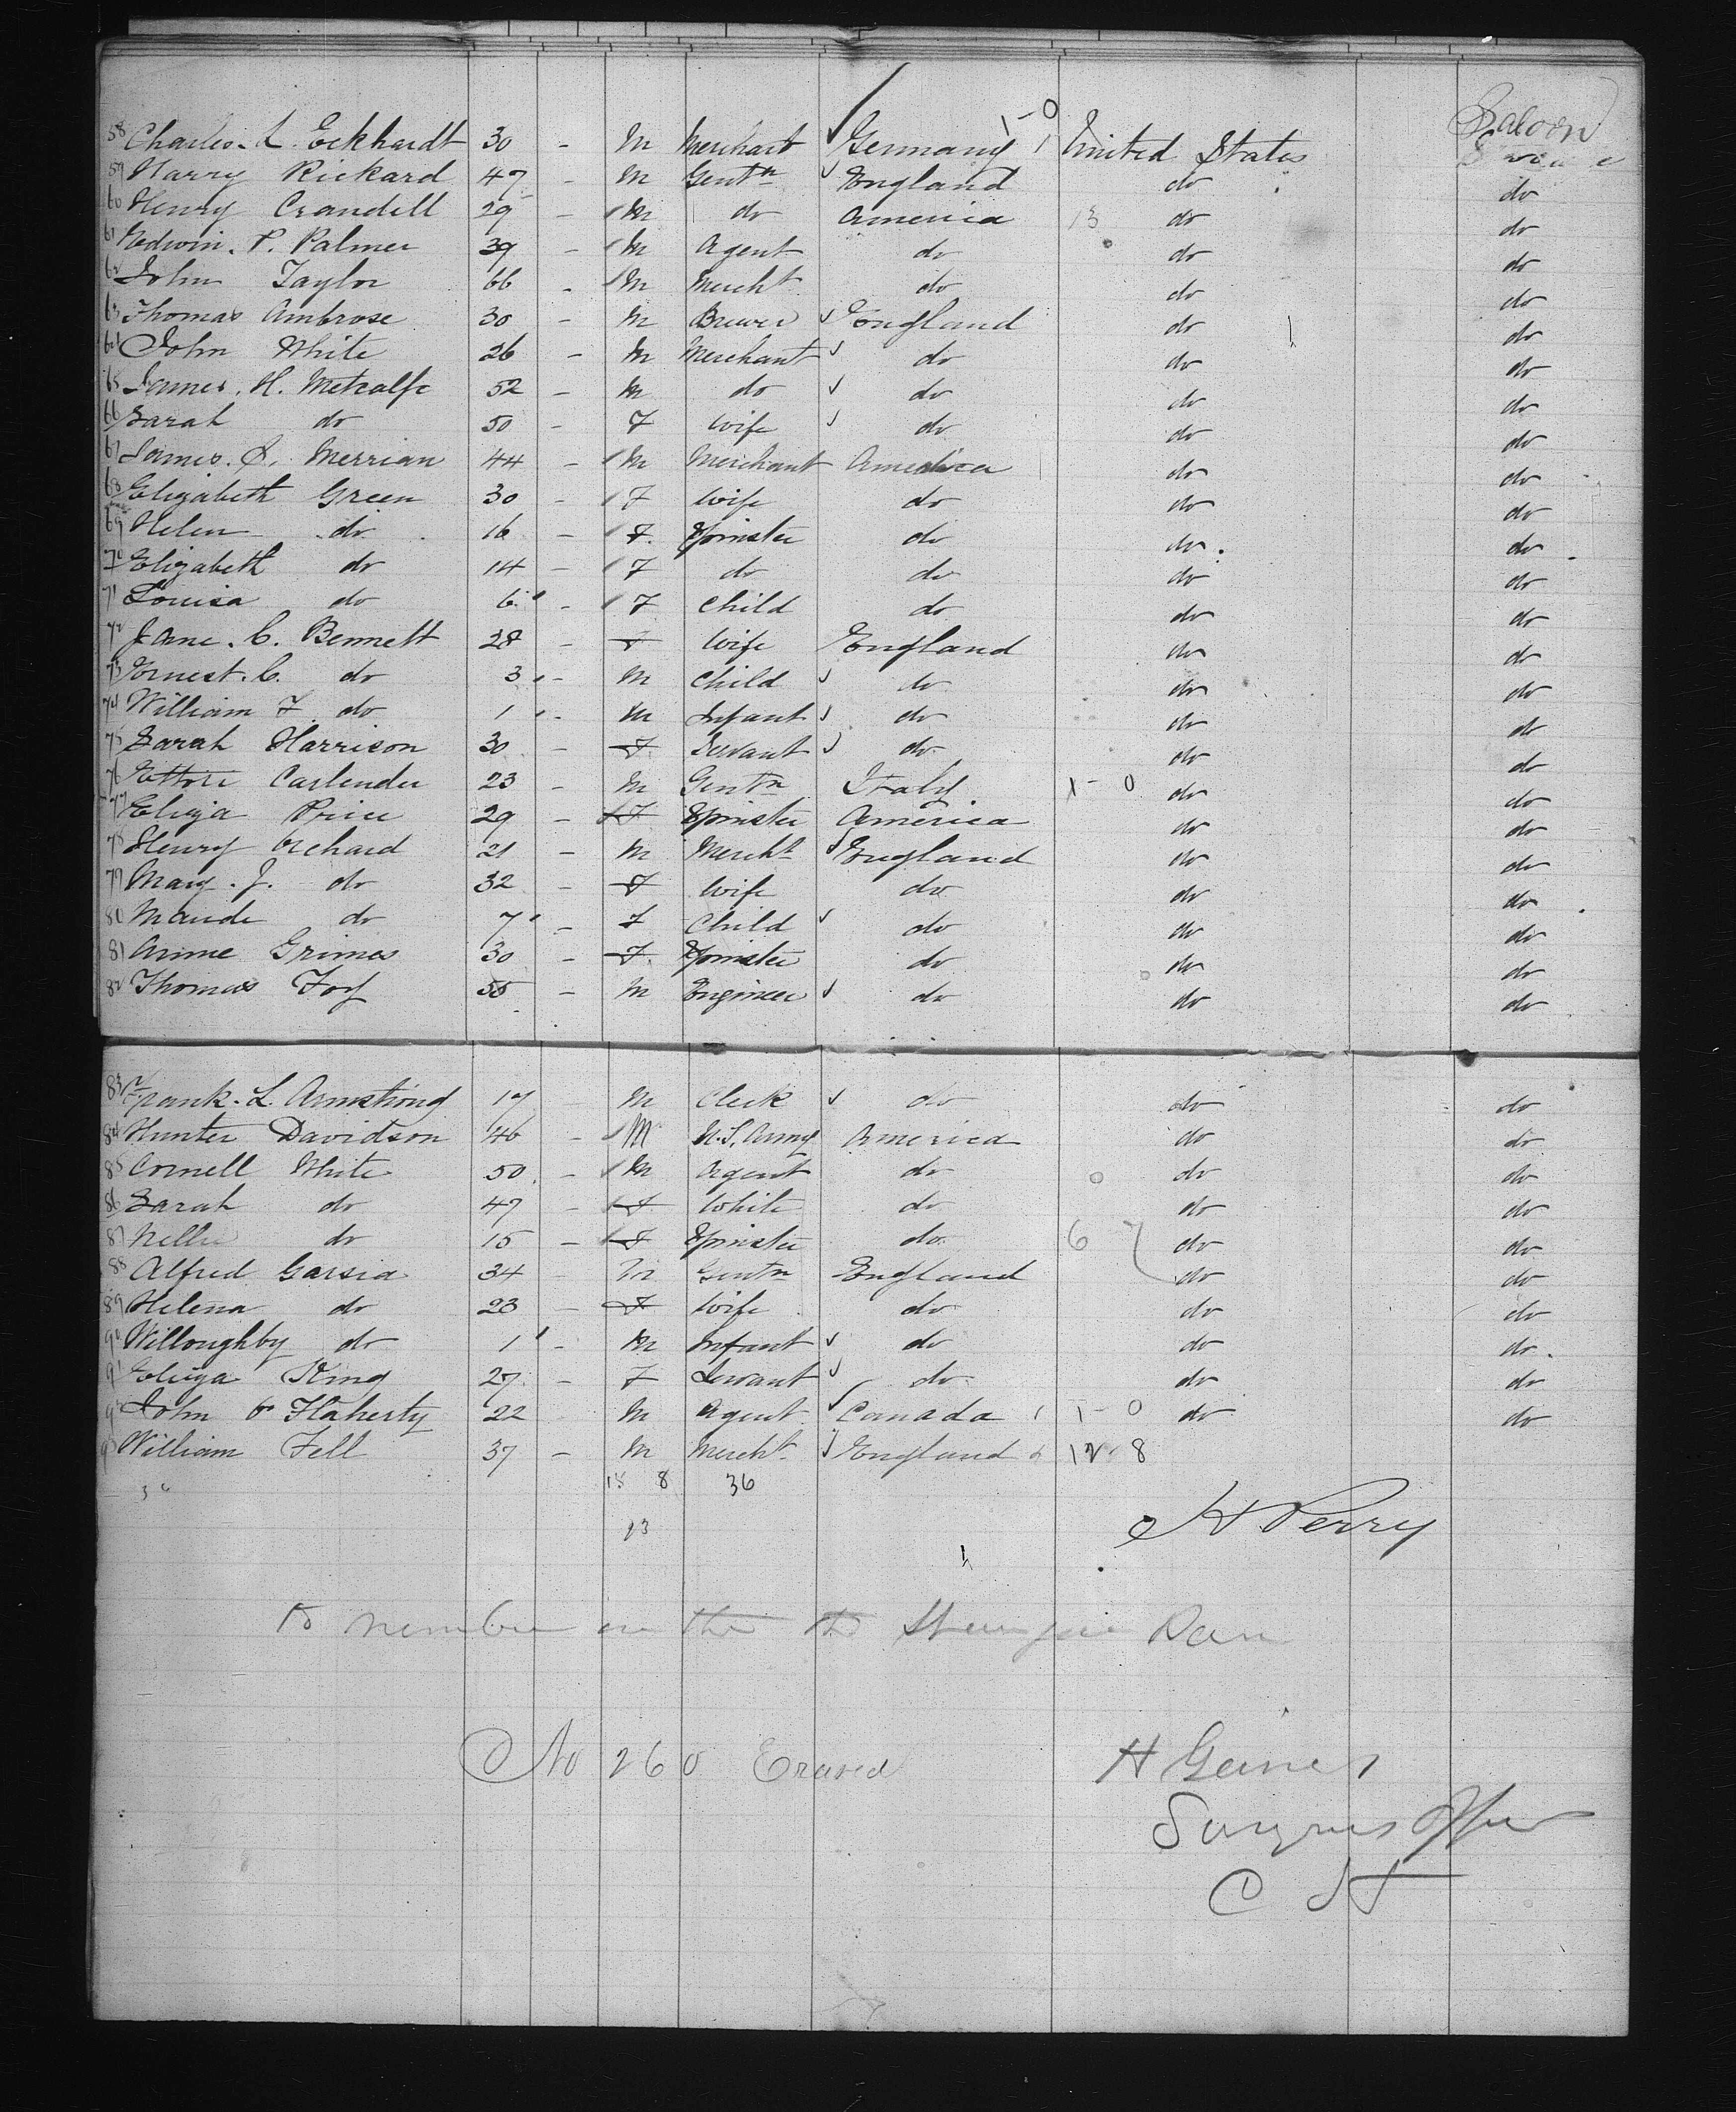 Saloon
1-0
58 Charles. L. Eckhardt 30 - M Merchant Germany 1 United States
59 Harry Rickard 47 - M Gentn England do do
60 Henry Crandell 29 - M do America 13 do do
61 Edwin. P. Palmer 39 - M Agent do do do
62 John Taylor 66 - M Mercht do do do
63 Thomas Ambrose 30 - M Brewer England do do
64 John White 26 - M Merchant do do do
65 James. H. Metcalfe 52 - M do do do do
66 Sarah do 50 - F Wife do do do
67 James. S. Merrian 44 - M Merchant America do do
68 Elizabeth Green 30 - F Wife do do do
69 Helen do 16 - F. Spinster do do do
70 Elizabeth do 14 - F do do do do
71 Louisa do 6 - F Child do do do
72 Jane. C. Bennett 28 - F Wife England do do
73 Ernest. C. do 3 - M Child do do do
74 William F. do 1 - M Infant do do do
75 Sarah Harrison 30 - F Servant do do do
76 Ettore Carlender 23 - M Gentn Italy 1-0 do do
77 Eliza Price 29 - F Spinster America do do
78 Henry Orchard 21 - M Mercht England do do
79 Mary. J. do 32 - F Wife do do do
80 Maude do 7 - F Child do do do
81 Annie Grimes 30 - F. Spinster do do do
82 Thomas Foy 55 - M Engineer do do do
83 Frank. L. Armstrong 17 - M Clerk do do do
84 Hunter Davidson 46 - M U.S. Army America do do
85 Cornell White 50 - M Agent do 0 do do
86 Sarah do 47 - F White do do do
87 Nellie do 15 - F Spinster do 6 7 do do
88 Alfred Garsia 34 - M Gentn England do do
89 Helena do 23 - F Wife do do do
90 Willoughby do 1 - M Infant do do do
91 Eliza King 27 - F Servant do do do
92 John O Flaherty 22 - M Agent Canada 1 1-0 do do
93 William Fell 37 - M Mercht England 12 8
18 8 36
13
H Perry
No 260 Erased
H Geines